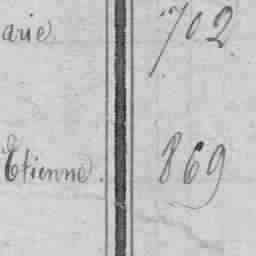 arie 702.
Etienne. 869